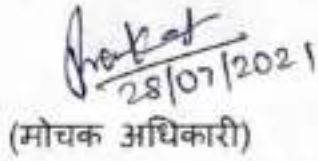 28/07/2021
(मोचक अधिकारी)